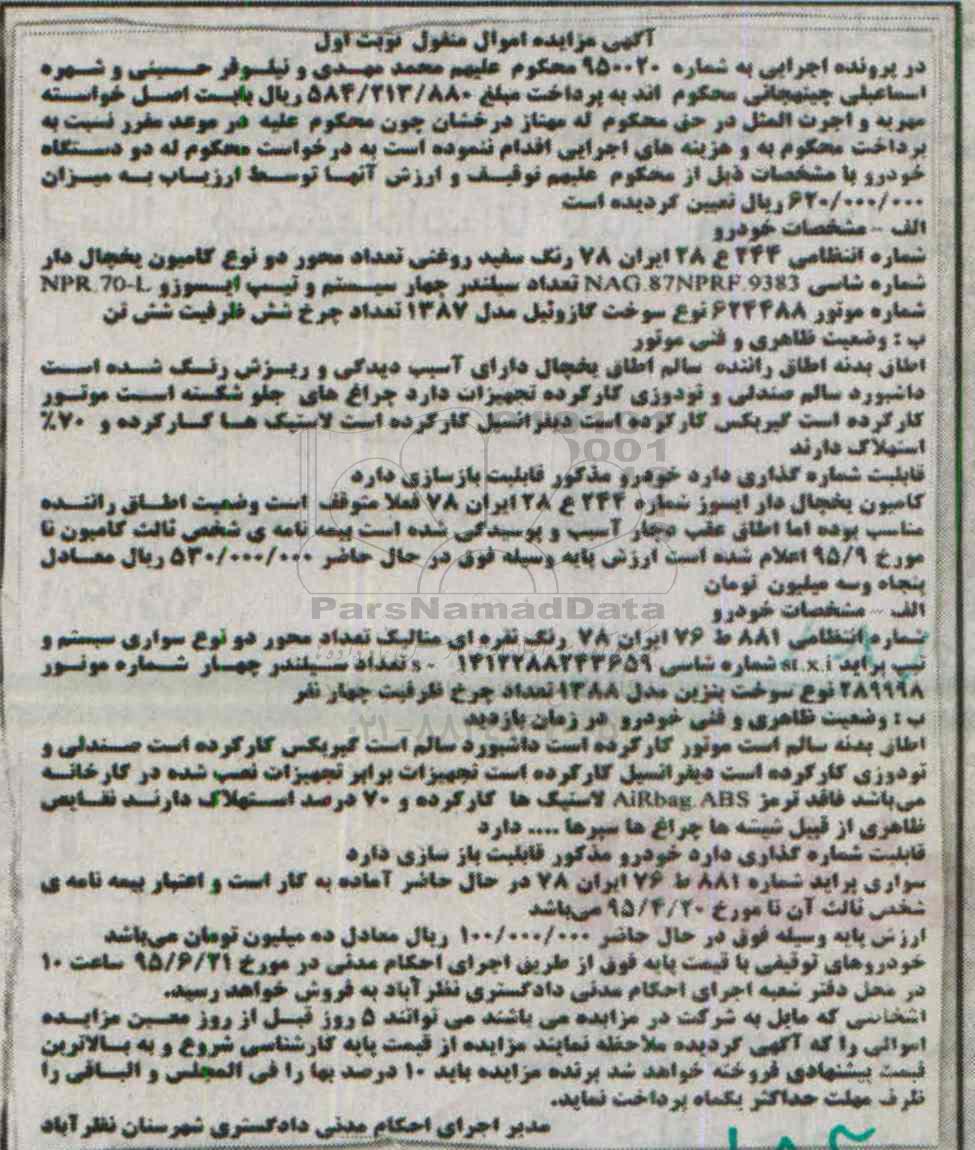 آگهی مزایده اموال منقول نوبت اول
در پرونده اجرایی به شماره ۹۵۰۰۲۰ محکوم علیهم محمد مهدی و نیلوفر حسینی و شهره
اسماعیلی چینهجانی محکوم اند به پرداخت مبلغ ۵۸۴/۲۱۳/۸۸۰ ریال بابت اصل خواسته
مهریه و اجرت المثل در حق محکوم له مهناز درخشان چون محکوم علیه در موعد مقرر نسبت به
پرداخت محکوم به و هزینه های اجرایی اقدام ننموده است به درخواست محکوم له دو دستگاه
خودرو با مشخصات ذیل از محکوم علیهم توقیف و ارزش آنها توسط ارزیاب به میزان
۶۲۰/۰۰۰/۰۰۰ ریال تعیین گردیده است
الف - مشخصات خودرو
شماره انتظامی ۲۴۴ ع ۲۸ ایران ۷۸ رنگ سفید روغنی تعداد محور دو نوع کامیون یخچال دار
شماره شاسی NAG.87NPRF.9383 تعداد سیلندر چهار سیستم و تیپ ایسوزو NPR.70-L
شماره موتور ۶۲۴۴۸۸ نوع سوخت گازوئیل مدل ۱۳۸۷ تعداد چرخ شش ظرفیت شش تن
ب : وضعیت ظاهری و فنی موتور
اطاق بدنه اطاق راننده سالم اطاق یخچال دارای آسیب دیدگی و ریزش رنگ شده است
داشبورد سالم صندلی و تودوزی کارکرده تجهیزات دارد چراغ های جلو شکسته است موتور
کارکرده است گیربکس کارکرده است دیفرانسیل کارکرده است لاستیک ها کارکرده و ۷۰٪
استهلاک دارند
قابلیت شماره گذاری دارد خودرو مذکور قابلیت بازسازی دارد
کامیون یخچال دار ایسوز شماره ۲۴۴ ع ۲۸ ایران ۷۸ فعلا متوقف است وضعیت اطاق راننده
مناسب بوده اما اطاق عقب دچار آسیب و پوسیدگی شده است بیمه نامه ی شخص ثالث کامیون تا
مورخ ۹۵/۹ اعلام شده است ارزش پایه وسیله فوق در حال حاضر ۵۳۰/۰۰۰/۰۰۰ ریال معادل
پنجاه وسه میلیون تومان
ParsNamadData
الف - مشخصات خودرو
شماره انتظامی ۸۸۱ ط ۷۶ ایران ۷۸ رنگ نقره ای متالیک تعداد محور دو نوع سواری سیستم و
تیپ پراید st.x.i شماره شاسی s- ۱۴۱۲۲۸۸۲۴۳۶۵۹ تعداد سیلندر چهار شماره موتور
۲۸۹۹۹۸ نوع سوخت بنزین مدل ۱۳۸۸ تعداد چرخ ظرفیت چهار نفر
ب : وضعیت ظاهری و فنی خودرو در زمان بازدید
اطاق بدنه سالم است موتور کارکرده است داشبورد سالم است گیربکس کارکرده است صندلی و
تودوزی کارکرده است دیفرانسیل کارکرده است تجهیزات برابر تجهیزات نصب شده در کارخانه
می‌باشد فاقد ترمز AiRbag.ABS لاستیک ها کارکرده و ۷۰ درصد استهلاک دارند نقایص
ظاهری از قبیل شیشه ها چراغ ها سپرها .... دارد
قابلیت شماره گذاری دارد خودرو مذکور قابلیت باز سازی دارد
سواری پراید شماره ۸۸۱ ط ۷۶ ایران ۷۸ در حال حاضر آماده به کار است و اعتبار بیمه نامه ی
شخص ثالث آن تا مورخ ۹۵/۴/۲۰ می‌باشد
ارزش پایه وسیله فوق در حال حاضر ۱۰۰/۰۰۰/۰۰۰ ریال معادل ده میلیون تومان می‌باشد
خودروهای توقیفی با قیمت پایه فوق از طریق اجرای احکام مدنی در مورخ ۹۵/۶/۲۱ ساعت ۱۰
در محل دفتر شعبه اجرای احکام مدنی دادگستری نظرآباد به فروش خواهد رسید.
اشخاصی که مایل به شرکت در مزایده می باشند می توانند ۵ روز قبل از روز معین مزایده
اموالی را که آگهی گردیده ملاحظه نمایند مزایده از قیمت پایه کارشناسی شروع و به بالاترین
قیمت پیشنهادی فروخته خواهد شد برنده مزایده باید ۱۰ درصد بها را فی المجلس و الباقی را
ظرف مهلت حداکثر یکماه پرداخت نماید.
مدیر اجرای احکام مدنی دادگستری شهرستان نظرآباد